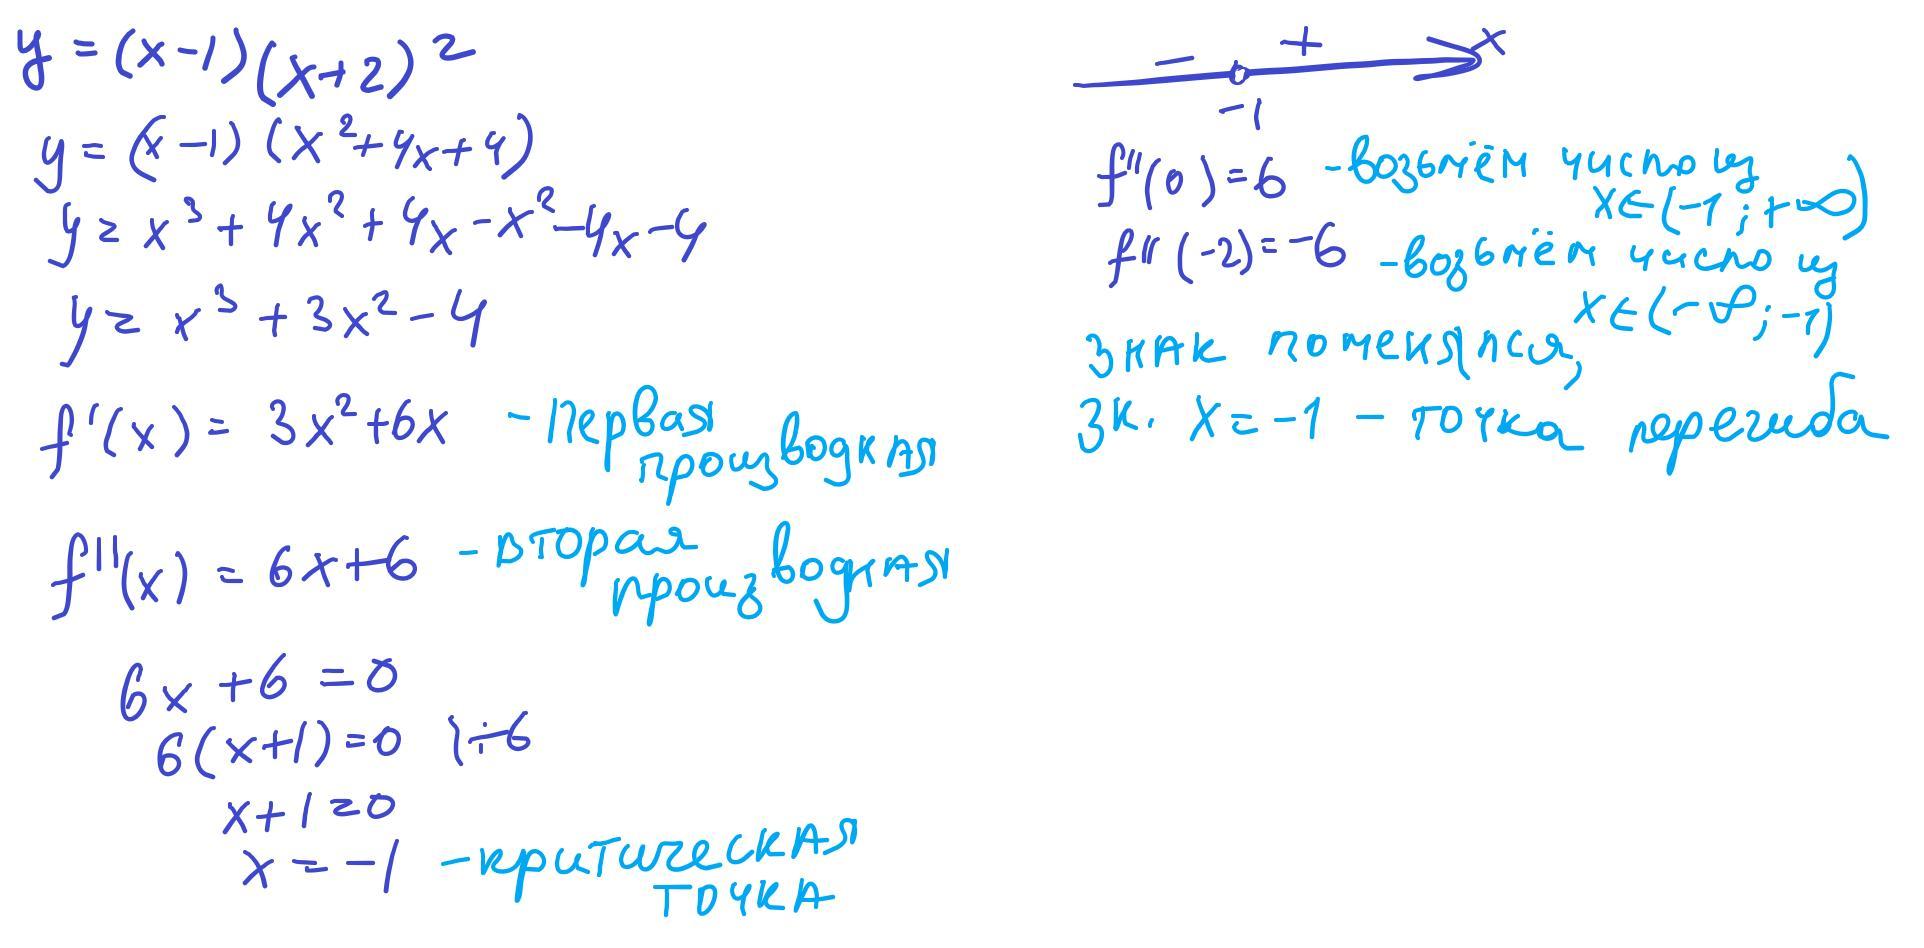 y = (x-1)(x+2)²
y = (x-1) (x²+4x+4)
y = x³ + 4x² + 4x - x² - 4x - 4
y = x³ + 3x² - 4
f'(x) = 3x²+6x - Первая
производная
f''(x) = 6x+6 - вторая
производная
6x + 6 = 0
6(x+1)=0 |÷6
x+1=0
x = -1 - критическая
точка
- + x
-1
f''(0)=6 - возьмём число из
x∈(-1;+∞)
f''(-2)=-6 - возьмём число из
x∈(-∞;-1)
Знак поменялся,
Зн. x=-1 - точка перегиба